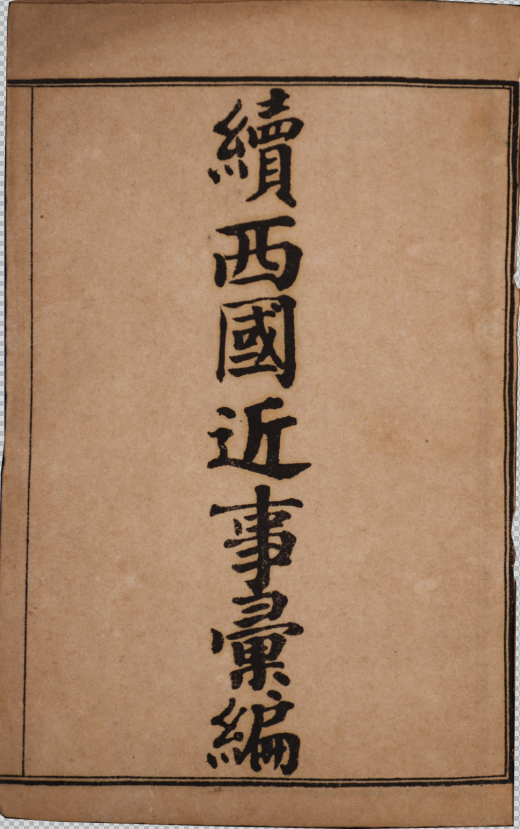 續西國近事彙編